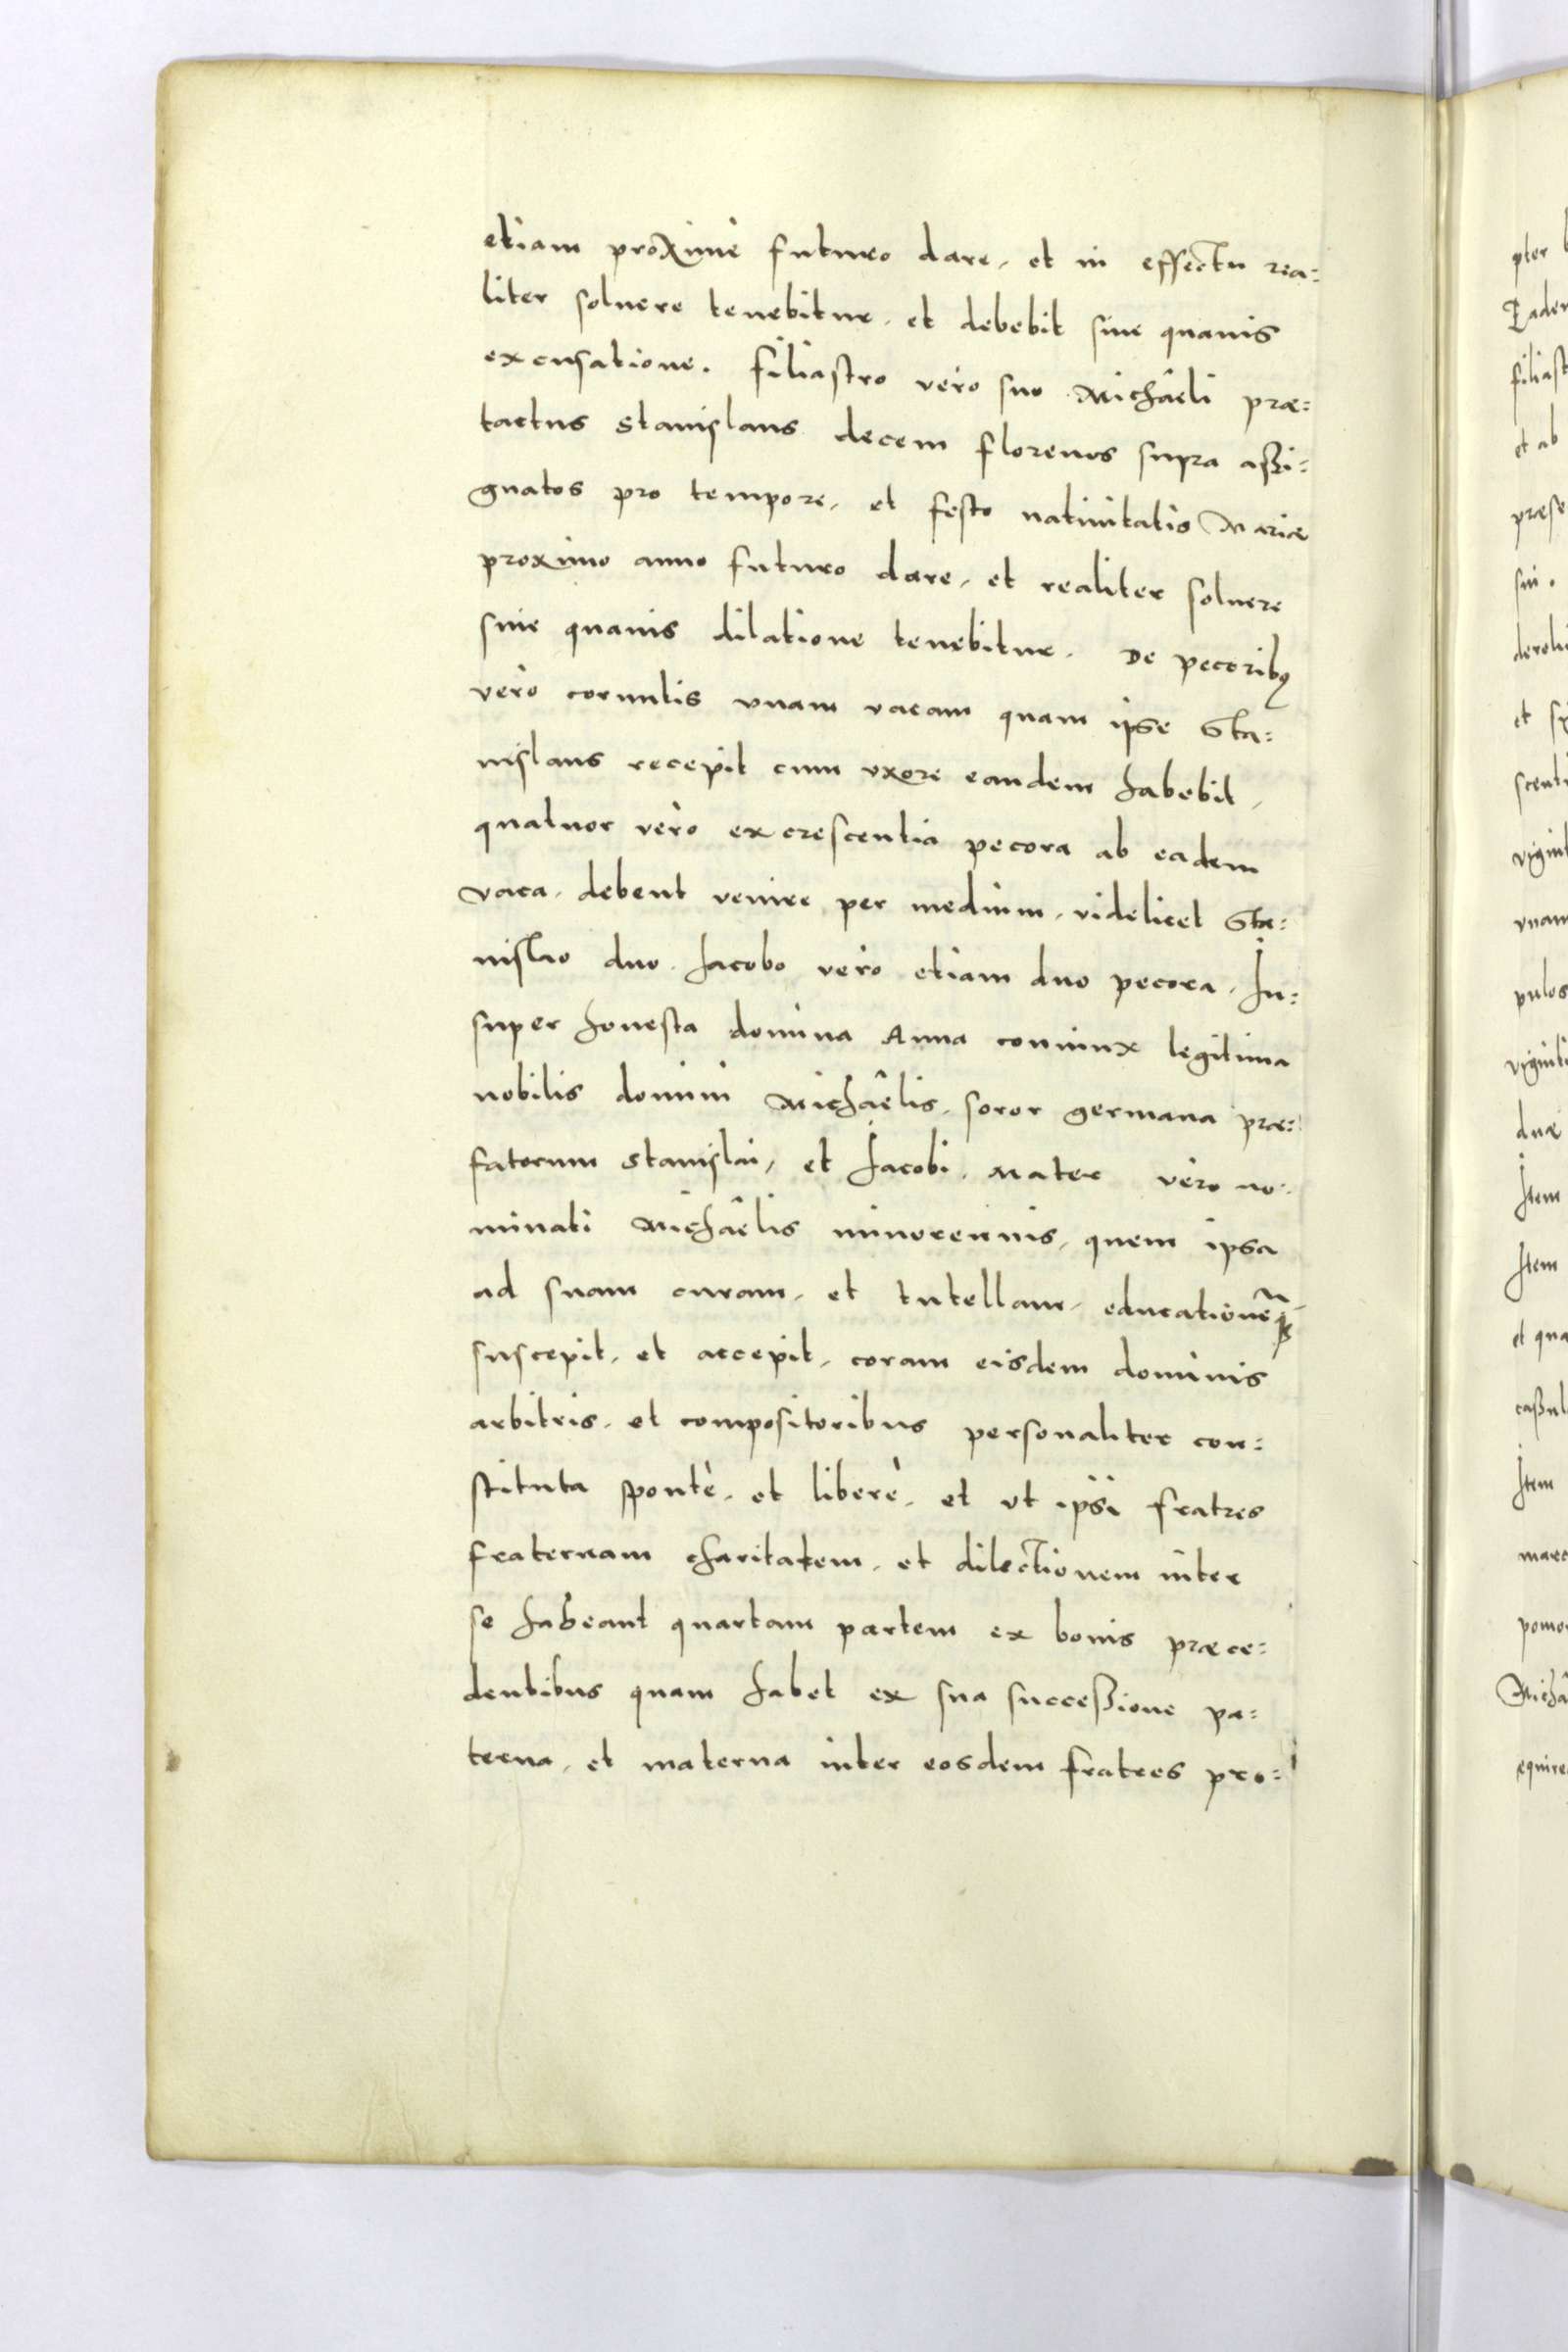 etiam proximè futuro dare, et in effectu rea=
liter soluere tenebitur, et debebit sine quauis
excusatione. Filiastro verò suo Michâeli præ=
tactus Stanislaus decem florenos supra aßi=
gnatos pro tempore, et festo natiuitatis Mariæ
proximo anno futuro dare, et realiter soluere
sine quauis dilatione tenebitur. De pecoribꝰ
verò cornutis vnam vacam quam ipse Sta=
nislaus recepit cum vxore eandem habebit,
quatuor verò excrescentia pecora ab eadem
vaca, debent venire per medium, videlicet Sta=
nislao duo Jacobo verò etiam duo pecora, In=
super honesta domina Anna coniunx legitima
nobilis domini Michâelis, soror germana præ=
fatorum Stanislai, et Jacobi, Mater verò no=
minati Michâelis minorennis, quem ipsa
ad suam curam, et tutellam, educationẽqꝫ
suscepit, et accepit, coram eisdem dominis
arbitris, et compositoribus personaliter con=
stituta spontè, et liberè, et vt ipsi fratres
fraternam charitatem, et dilectionem inter
se habeant quartam partem ex bonis præce=
dentibus quam habet ex sua succeßione pa=
terna, et materna inter eosdem fratres pro=
pter
filiast
et ab
præse
sui.
et
vnam
pulos
duæ
Item
Item
et qua
Item
pomo
Michâ